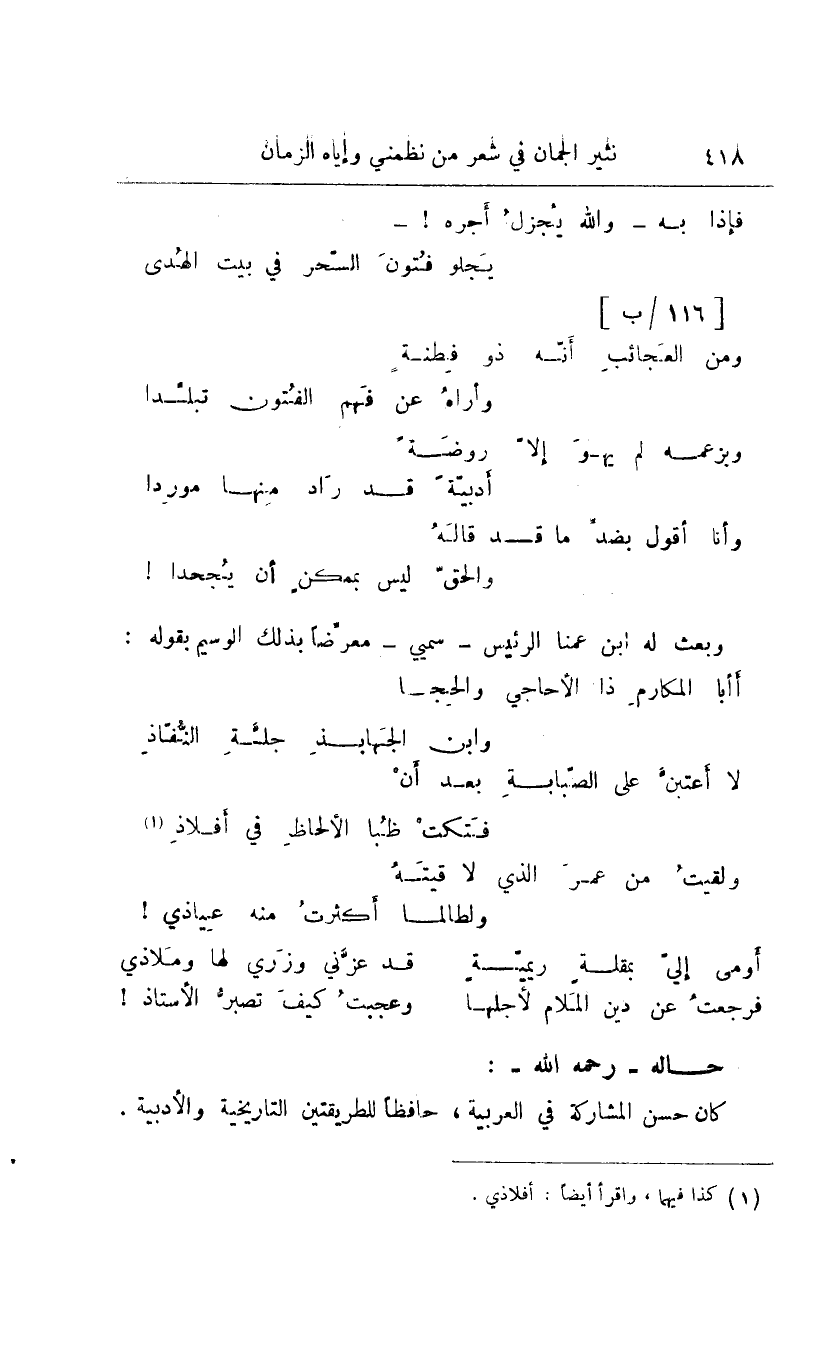 ٤١٨ نثير الجمان في شعر من نظمني وإياه الزمان
فإذا بـه ـ والله يُجزلُ أجره ! ـ
يَجلو فُتونَ السّحر في بيت الهُدى
[ ١١٦/ب ]
ومن العَجائبِ أَنّـه ذو فِطنـةٍ
وأراهُ عن فَهم الفُتون تبلَّـدا
وبزعمـه لم يهـوَ إلاّ روضَـةً
أدبيّةً قـد رَاد مِنهـا مورِدا
وأنا أقول بضدِّ ما قـد قالَهُ
والحقّ ليس بممكنٍ أن يُجحدا !
وبعث له ابن عمنا الرئيس ـ سميي ـ معرِّضاً بذلك الوسيم بقوله :
أأبا المكارمِ ذا الأحاجي والحِجـا
وابن الجَهابـذِ جلَّةِ النُّفّاذِ
لا أعتبنَّ على الصّبابـةِ بعـد أنْ
فتَكتْ ظُبا الألحاظِ في أفـلاذِ (١)
ولقيتُ من عمـرَ الذي لا قيتَـهُ
ولطالمـا أكثرتُ منه عِياذي !
أومى إليّ بمقلـةٍ ريميّـةٍ قـد عزَّني وزَري لها ومَلاذي
فرجعتُ عن دين المَلام لأجلهـا وعجبتُ كيفَ تصبرُ الأستاذ !
حـاله ـ رحمه الله ـ :
كان حسن المشاركة في العربية ، حافظاً للطريقتين التاريخية والأدبية .
(١) كذا فيها ، واقرأ أيضاً : أفلاذي .